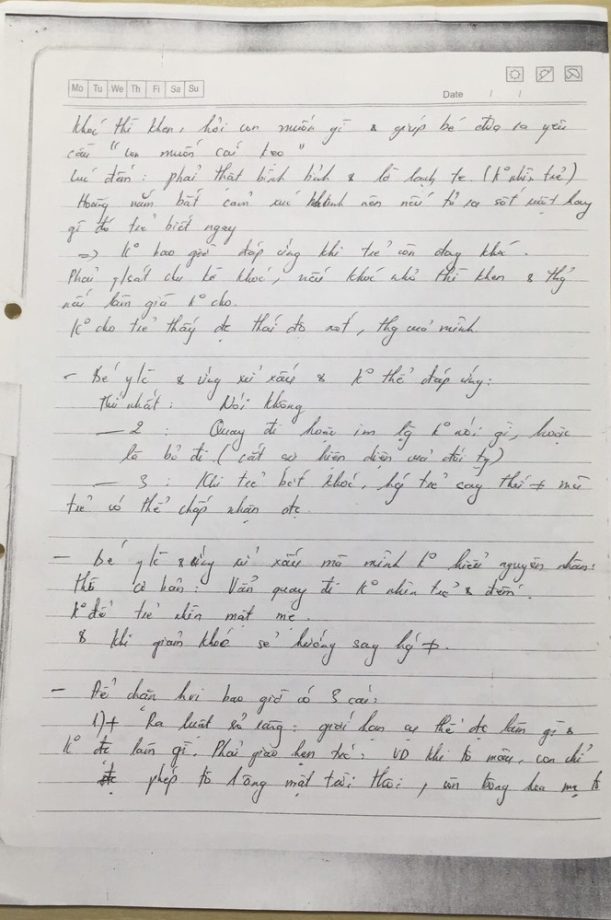 Mo Tu We Th Fi Sa Su
Date / /
khóc thì khen, hỏi con muốn gì & giúp bé đưa ra yêu
cầu "con muốn cái kẹo"
Lúc đếm: phải thật bình tĩnh & lờ lạnh te. (K° nhìn trẻ)
năm bắt cảm xúc mình nên nếu tỏ ra sốt ruột hay
gì đó trẻ biết ngay
=> K° bao giờ đáp ứng khi trẻ còn đang khóc.
Phải q/sát chu kì khóc, nếu khóc nhỏ thì khen &
nếu làm giá k° cho.
K° cho trẻ thấy đc thái độ, của mình
- Bé y/c & ứng xử xấu & k° thể đáp ứng:
Thứ nhất: Nói không
— 2: Quay đi hoặc im lặng k° nói gì, hoặc
là bỏ đi (cắt sự hiện diện của đối tg)
— 3: Khi trẻ bớt khóc, hg trẻ sang thứ + mà
trẻ có thể chấp nhận đc.
- Bé y/c & ứng xử xấu mà mình k° hiểu nguyên nhân:
cơ bản: Vẫn quay đi k° nhìn trẻ & đếm.
K° để trẻ nhìn mặt mẹ.
& khi giảm khóc sẽ hướng sang hđ +.
- Để chặn hvi bao giờ có 3 cái:
1) + Ra luật rõ ràng: giới hạn cụ thể đc làm gì &
k° đc làm gì. Phải giao hẹn trc: VD khi tô màu, con chỉ
phép tô hồng mặt trời thôi, còn bông hoa mẹ tô